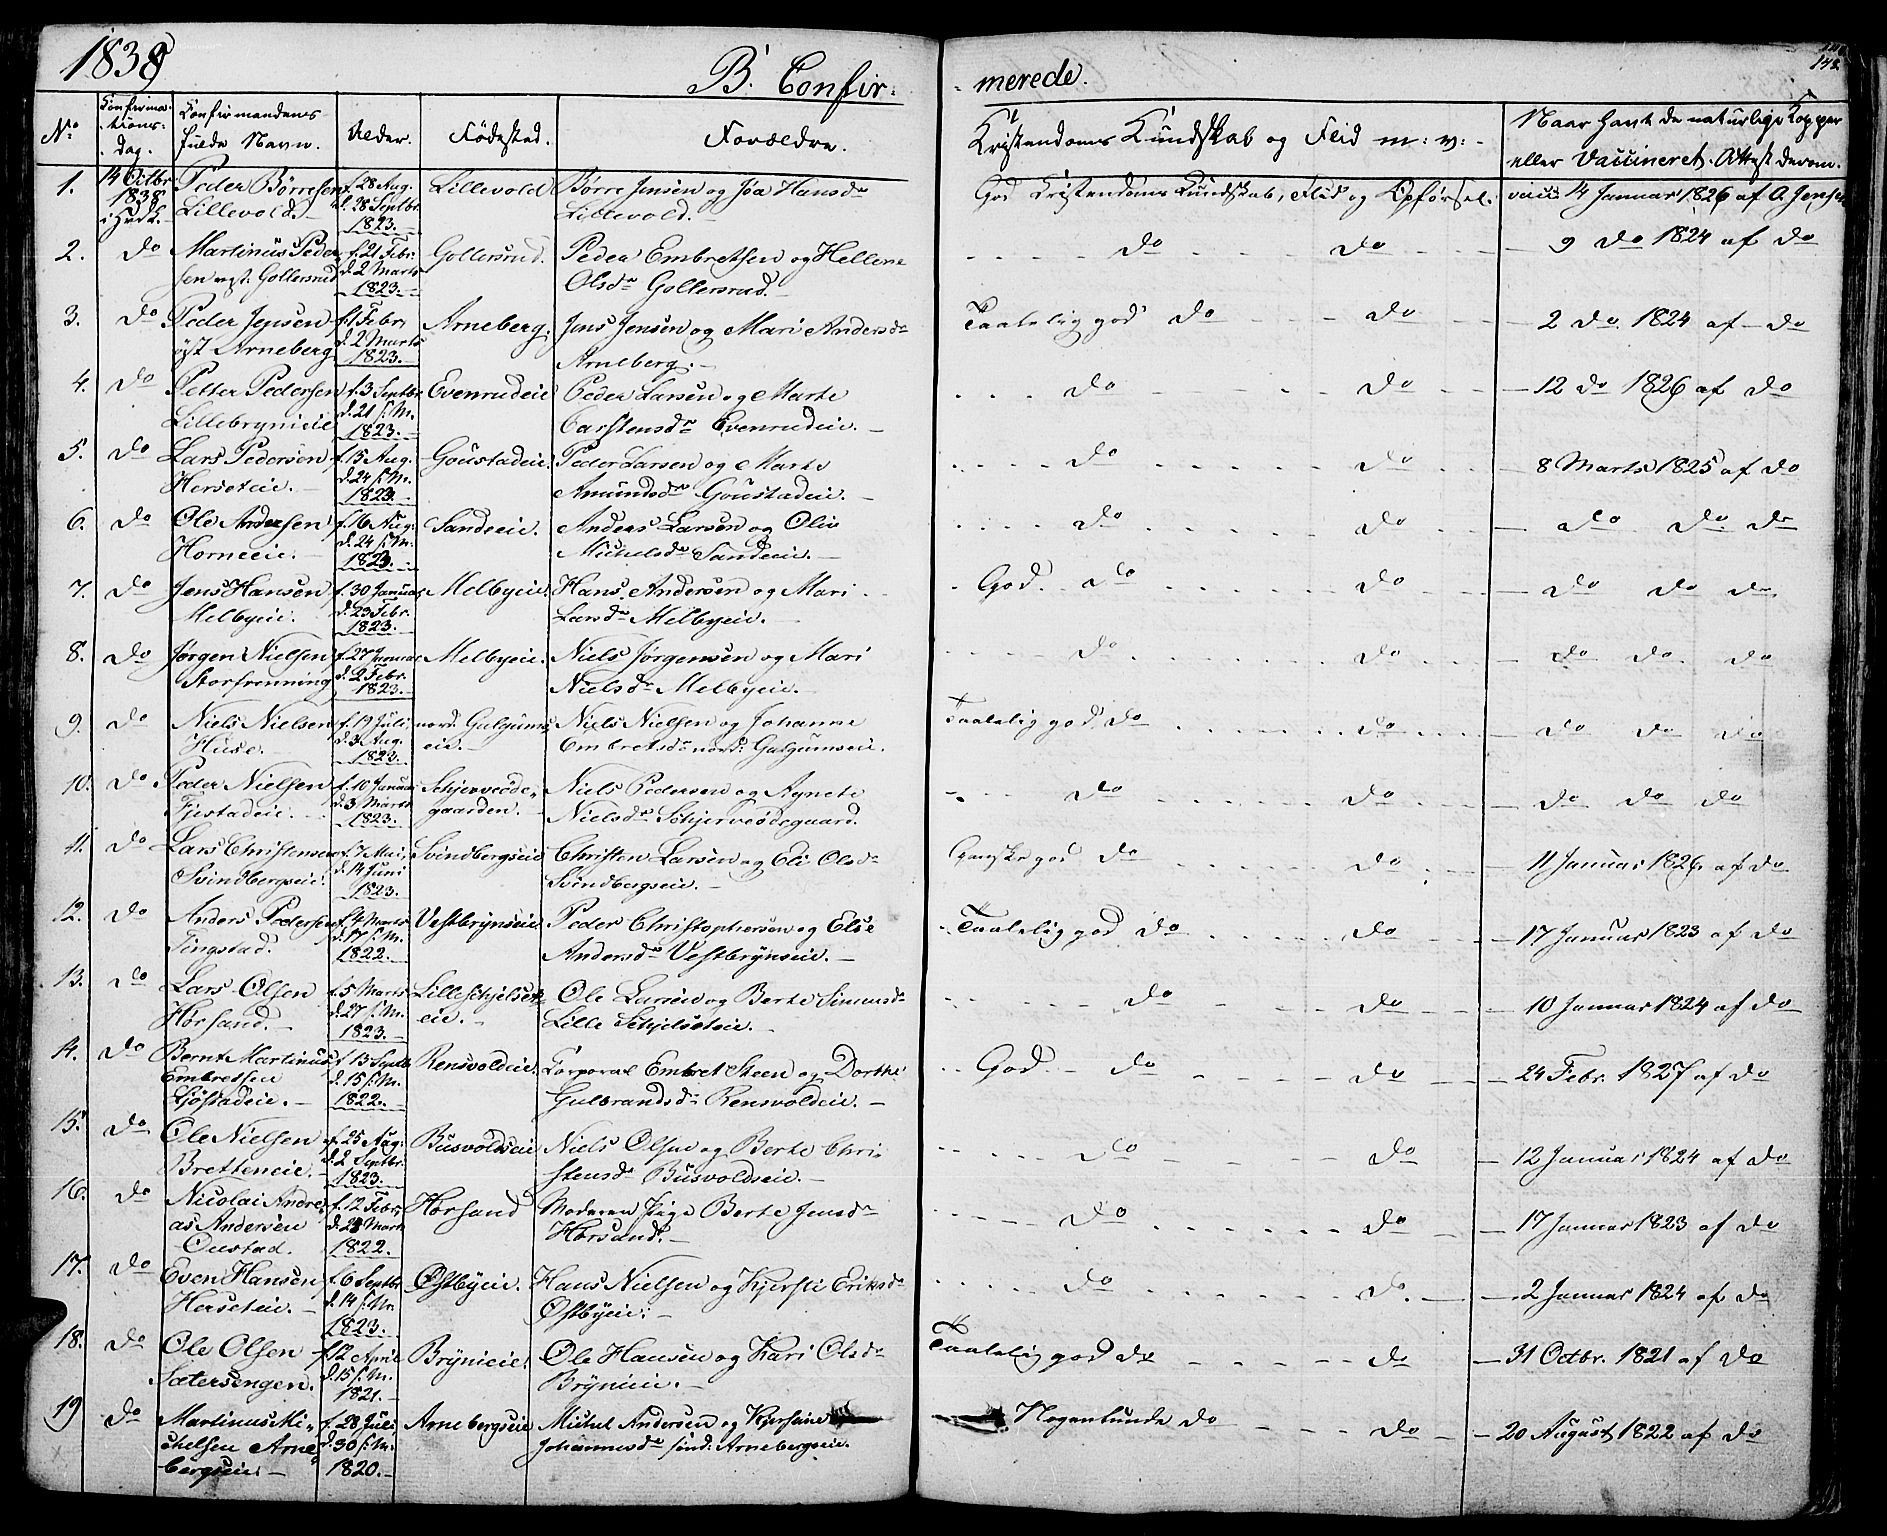 1838
B. Confir-
merede.
148.
No
Confirma-
tions-
Dag.
Confirmandens
fulde Navn.
Alder.
Fødested.
Forældre.
Kristendoms Kundskab og Flid m: v:
Naar havt de naturlige Kopper
eller Vaccineret. Attest derom.
1.
14 Octbr
1838
Peder Børresen
Lillevold.
f. 28 Aug.
d. 28 Septbr
1823.
Lillevold
Børre Jensen og Joa Hansdr
Lillevold.
God Kristendoms Kundskab, Flid og Opførsel.
4 Januar 1826 af A. Jensen
2.
do
Martinus Peder
sen Gollersrud
f. 21 Febr.
d. 2 Marts
1823.
Gollersrud.
Peder Embretsen og Hellene
Olsdr Gollersrud.
do do
9 do 1824 af do
3.
do
Peder Jensen
øst Arneberg
f. 1 Febr.
d. 2 Marts
1823.
Arneberg.
Jens Jensen og Mari Andersdr
Arneberg.
Taalelig god do do
2 do 1824 af do
4.
do
Petter Pedersen
Lillebrynieie
f. 3 Septbr
d. 21 s. M.
1823.
Evenrudeie
Peder Larsen og Marte
Carstensdr Evenrudeie.
do do
12 do 1826 af do
5.
do
Lars Pedersen
Herseteie.
f. 15 Aug.
d. 24 s. M.
1823
Goustadeie.
Peder Larsen og Marte
Amundsdr Goustadeie.
do do
8 Marts 1825 af do
6.
do
Ole Andersen
Horneeie.
f. 16 Aug.
d. 24 s. M.
1823.
Sandeeie.
Anders Larsen og Oliv
Michelsdr Sandeeie.
do do
do do do
7.
do
Jens Hansen
Melbyeie.
f. 30 Januar
d. 23 Febr.
1823.
Melbyeie.
Hans Andersen og Mari
Larsdr Melbyeie.
God do do
do do do
8.
do
Jørgen Nielsen
Storfrenning
f. 27 Januar
d. 2 Febr.
1823.
Melbyeie.
Niels Jørgensen og Mari
Nielsdr Melbyeie.
do do
do do do
9.
do
Niels Nielsen
Huse.
f. 19 Juli
d. 3 Aug.
1823.
nord. Galgums
eie.
Niels Nielsen og Johanne
Embretsdr nord: Galgumseie.
Taalelig god do do
do do do
10.
do
Peder Nielsen
Fjestadeie.
f. 10 Januar
d. 3 Marts
1823.
Schjerveøde-
gaarden.
Niels Pedersen og Agnete
Nielsdr Schjerveødegaard.
do do
do do do
11.
do
Lars Christensen
Svindbergseie.
f. 7 Mai
d. 14 Juni
1823.
Svindbergseie
Christen Larsen og Eli Olsdr
Svindbergseie.
Ganske god do do
11 Januar 1826 af do
12.
do
Anders Pedersen
Tingstad.
f. 4 Marts
d. 17 s. M.
1822.
Vestbrynseie
Peder Christophersen og Else
Andersdr Vestbrynseie.
Taalelig god do do
17 Januar 1823 af do
13.
do
Lars Olsen
Horsand.
f. 5 Marts
d. 27 s. M.
1823.
Lille Schjelset
eie.
Ole Larsen og Berte Simensdr
Lille Schjelseteie.
do do
10 Januar 1824 af do
14.
do
Bernt Martinus
Embretsen
f. 13 Septb
d. 15 s. M.
1822.
Rensvoldeie.
Corporal Embret Steen og Dorthe
Gulbrandsdr Rensvoldeie.
God do do
24 Febr. 1827 af do
15.
do
Ole Nielsen
Bretteneie.
f. 25 Aug.
d. 2 Septbr.
1823.
Busvoldseie
Niels Olsen og Berte Chri
stensdr Busvoldseie.
do do
12 Januar 1824 af do
16.
do
Nicolai Andre
as Andersen
Oustad.
f. 12 Febr.
d. 24 Marts
1822.
Horsand
Moderen Pige Berte Jensdr
Horsand.
do do
17 Januar 1823 af do
17.
do
Even Hansen
Herseteie.
f. 6 Septbr
d. 14 s. M.
1823.
Østbyeie.
Hans Nielsen og Kjersti Eriksdr
Østbyeie.
do do.
2 Januar 1824 af do
18.
do
Ole Olsen
Sætersengen.
f. 12 April
d. 15 s. M.
1821.
Brynieie.
Ole Hansen og Kari Olsdr
Brynieie.
Taalelig god do do
31 Octbr. 1821 af do
19
do
Martinus Mi-
chelsen Arne-
bergseie.
f. 28 Juli
d. 30 s. M.
1820.
Arnebergseie
Michel Andersen og Kjersti
Johannesdr sønd: Arnebergseie.
Nogenlunde do do
20 August 1822 af do